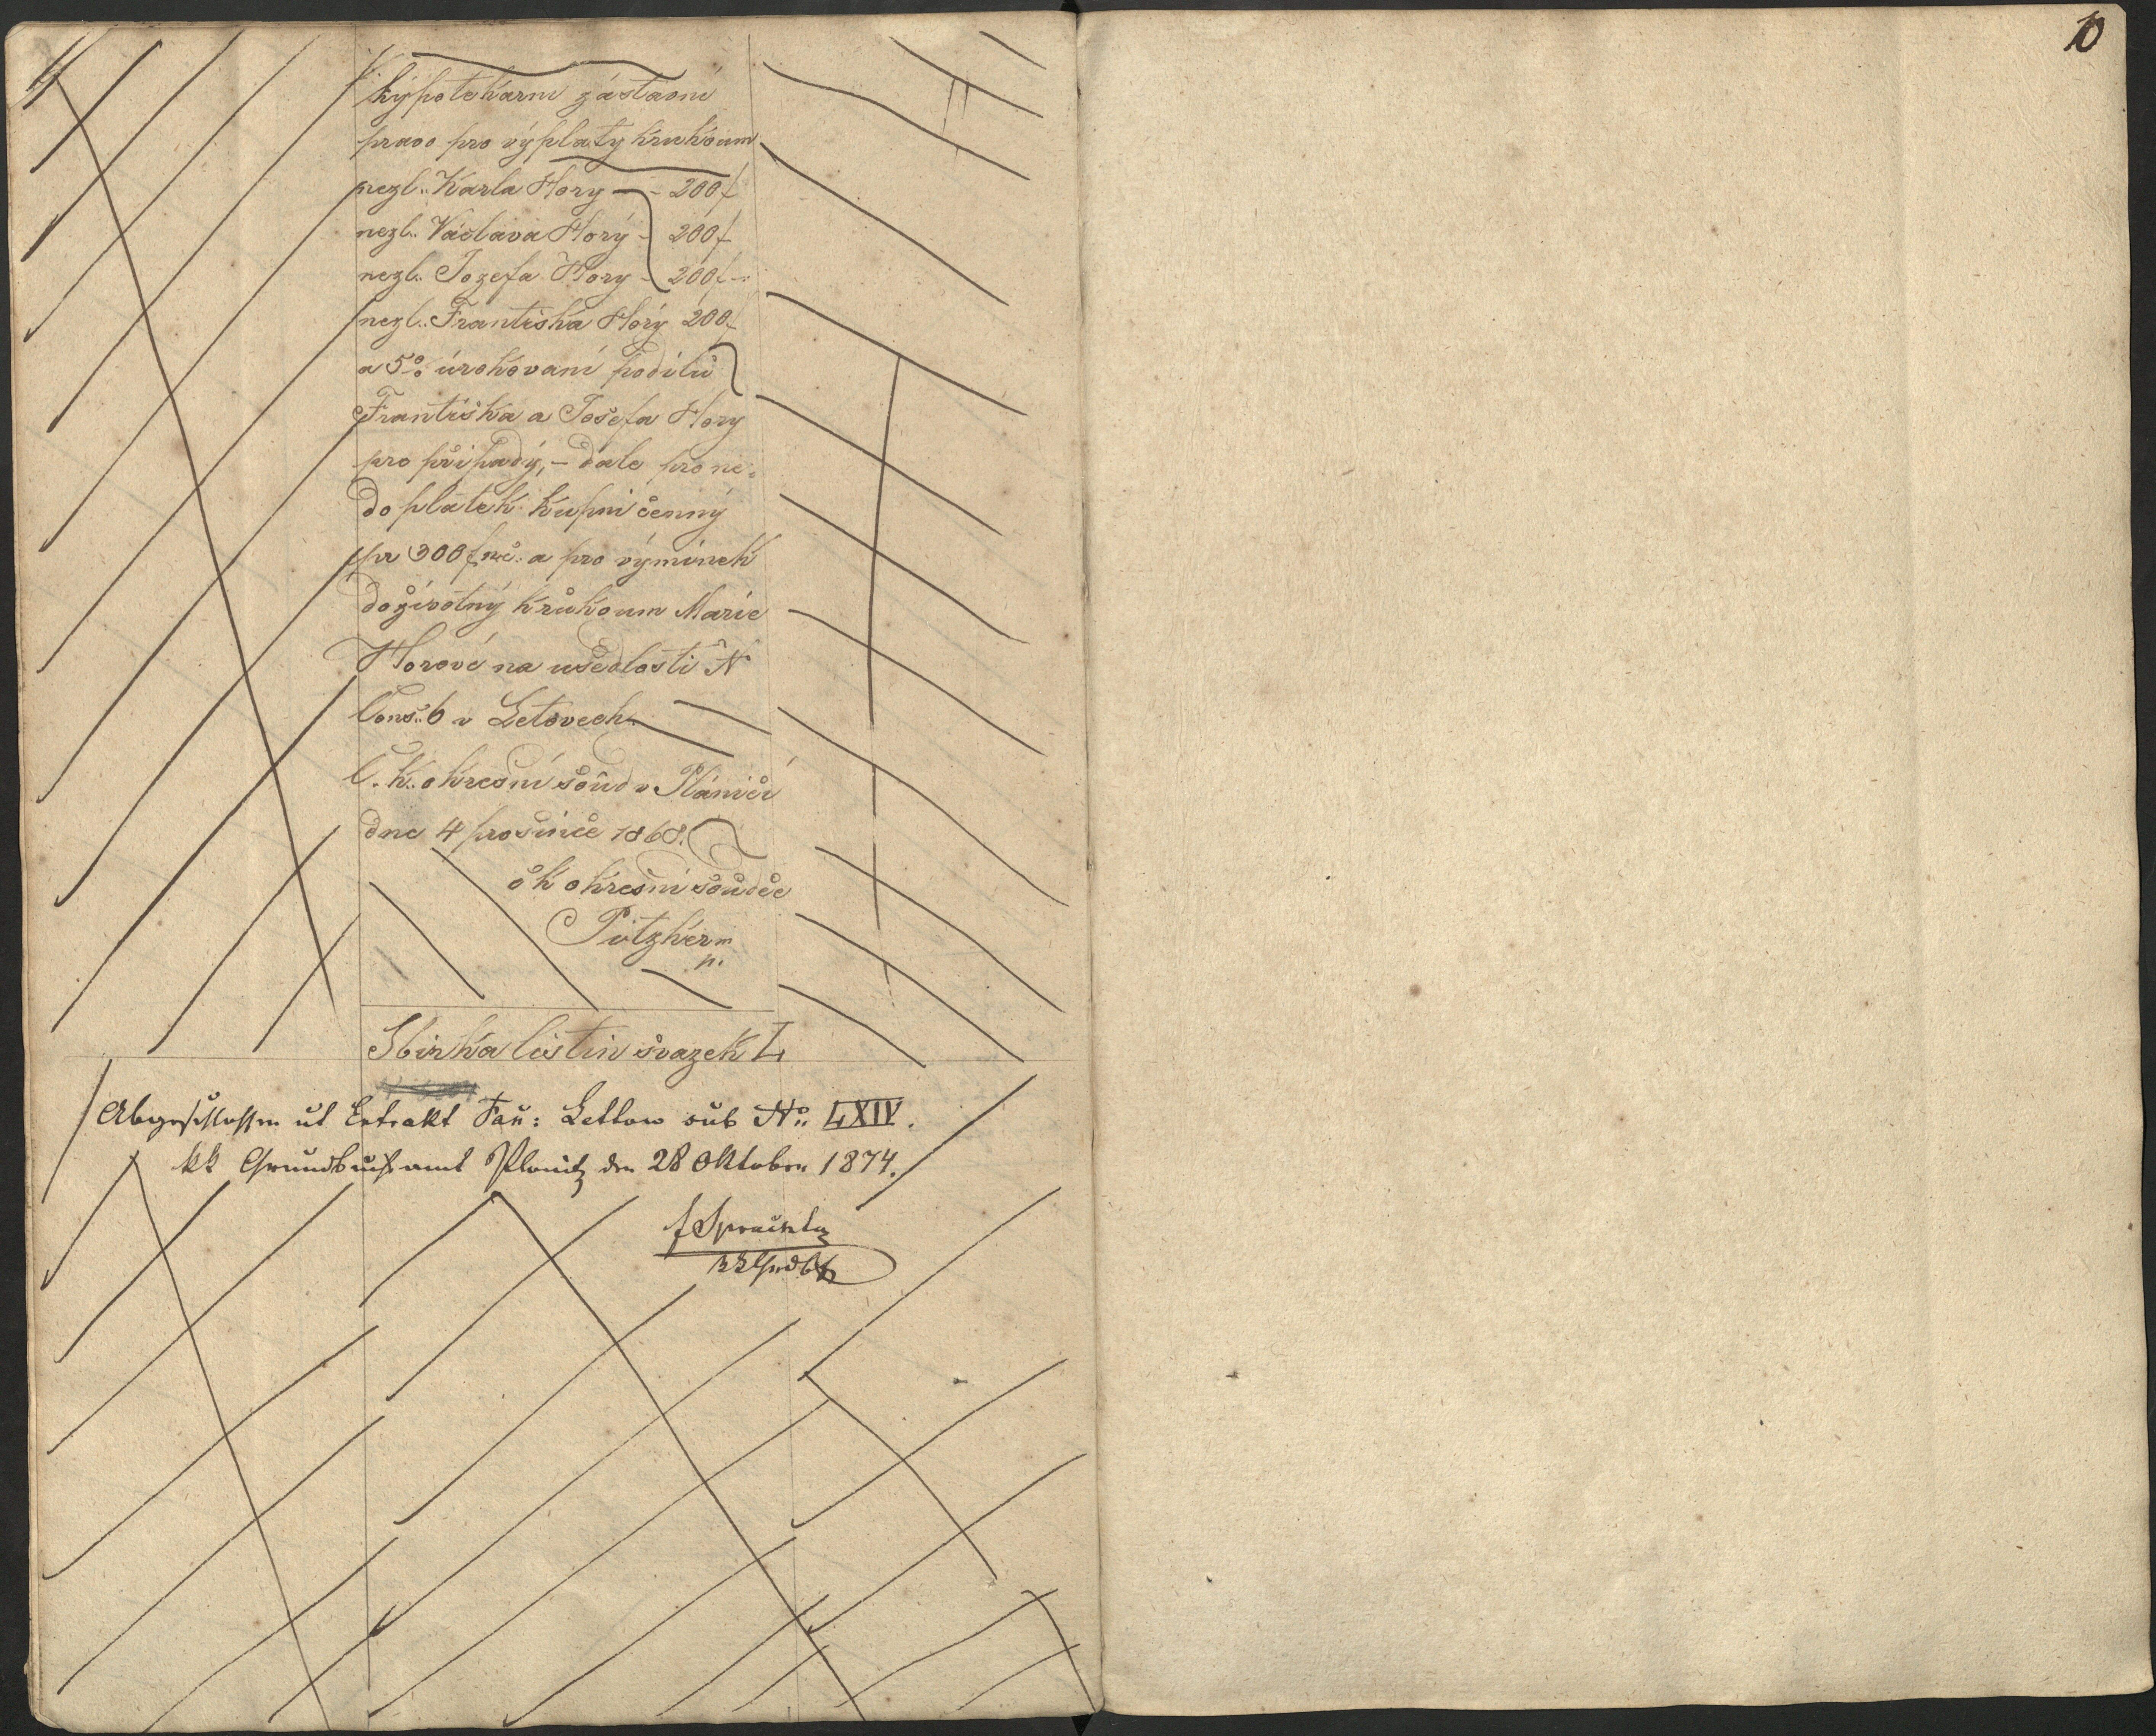 hypotekární zástavní
právo pro výplaty k rukoum
nezl. Karla Hory - 200 f
nezl. Václava Horý - 200 f
nezl. Jozefa Hory - 200 f
nezl. Františka Horý 200 f
a 5% úrokovaní podílů
Františka a Josefa Hory
pro případy, - dále pro ne-
doplatek kupní cenný
pr 300 f rč. a pro výminek
doživotný k rukoum Marie
Horové na usedlosti N
Cons. 6 v Letovech.
C. k. okresní soud v Plánici
dne 4 prosince 1868.
c k okresní soudce
Pitzker m
p.
Sbírka listin svazek L
Abgeschlossen ut Extrakt Fau: Lettow sub No. LXIV.
kk Grundbuchsamt Planitz den 28 Oktober 1874.
10